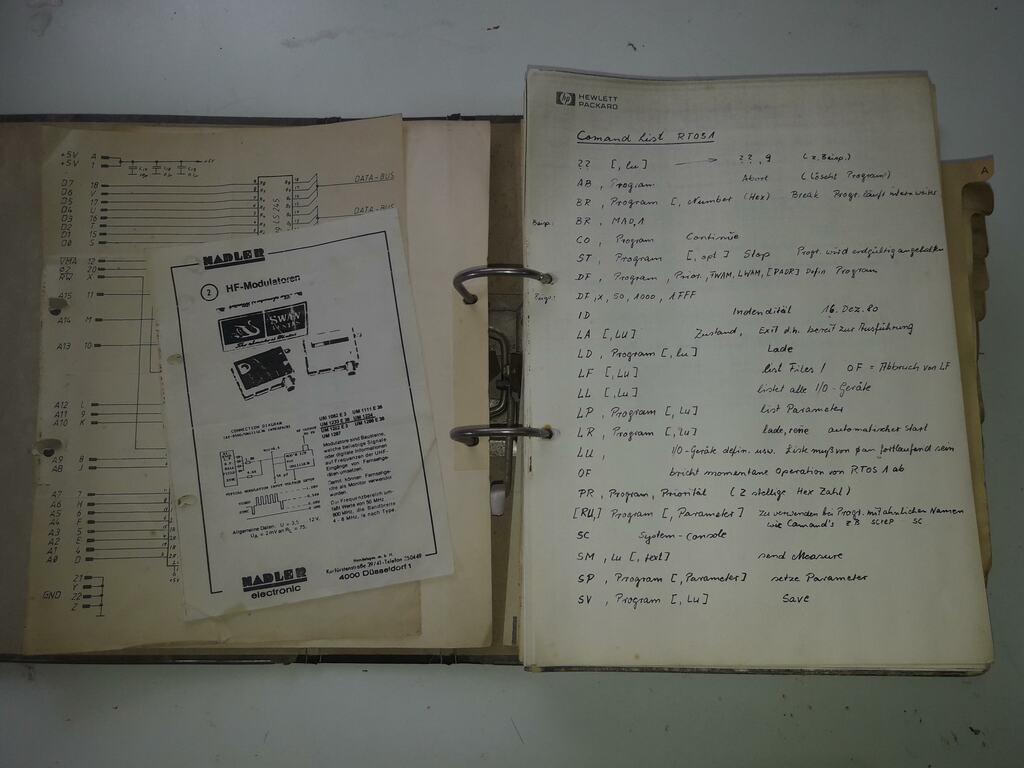 +5V A
+5V 1
+5V
D7 18
D6 V
D5 17
D4 U
D3 16
D2 T
D1 15
D0 S
DATA-BUS
DATA-BUS
VMA 12
Ø2 20
R/W X
A15 11
A14 M
A13 10
A12 L
A11 9
A10 K
A9 8
A8 J
A7 7
A6 H
A5 6
A4 F
A3 5
A2 E
A1 4
A0 D
21
Y
GND 22
Z
NADLER
2 HF-Modulatoren
SWAN
CONNECTION DIAGRAM
UM 1082 E 3 UM 1111 E 36
UM 1233 E 36 UM 1234
UM 1285 E 36
UM 1287
Modulatoren sind Bausteine,
welche beliebige Signale
oder digitale Informationen
auf Frequenzen der UHF-
Eingänge von Fernsehge-
räten umsetzen.
Damit können Fernsehge-
räte als Monitor verwendet
werden.
Die Frequenzbereich um-
faßt Werte von 50 MHz
900 MHz, die Bandbreite
4 - 8 MHz, je nach Type.
Allgemeine Daten: U = 3,5 ... 12V.
NADLER
electronic
Kurfürstenstraße 39/41-Telefon 350449
4000 Düsseldorf 1
hp HEWLETT
PACKARD
A
Comand List RTOS1
?? [, lu] → ??, 9 (z. Beisp.)
AB, Program Abort (löscht Program)
BR, Program [, Number (Hex) Break Progr. läuft intern weiter
Beisp. BR, MAD,1
CO, Program Continue
ST, Program [, opt] Stop Progr. wird endgültig angehalten
DF, Program, Prior., FWAM, LWAM, [PADR] Defin Program
DF, X, 50, 1000, 1FFF
ID Indendität 16. Dez. 80
LA [, Lu] Zustand, Exit d.h. bereit zur Ausführung
LD, Program [, lu] Lade
LF [, Lu] list Files / OF = Abbruch von LF
LL [, Lu] listet alle I/O-Geräte
LP, Program [, Lu] list Parameter
LR, Program [, Lu] lade, automatischer Start
LU, I/O-Geräte defin. usw. Liste muß von fortlaufend sein
OF bricht momentane Operation von RTOS1 ab
PR, Program, Priorität (2 stellige Hex Zahl)
[RU,] Program [, Parameter] Zu verwenden bei Progr. mit ähnlichen Namen
wie Comand's z.B SC
SC System-Console
SM, Lu [, text] send Measure
SP, Program [, Parameter] setze Parameter
SV, Program [, Lu] Save